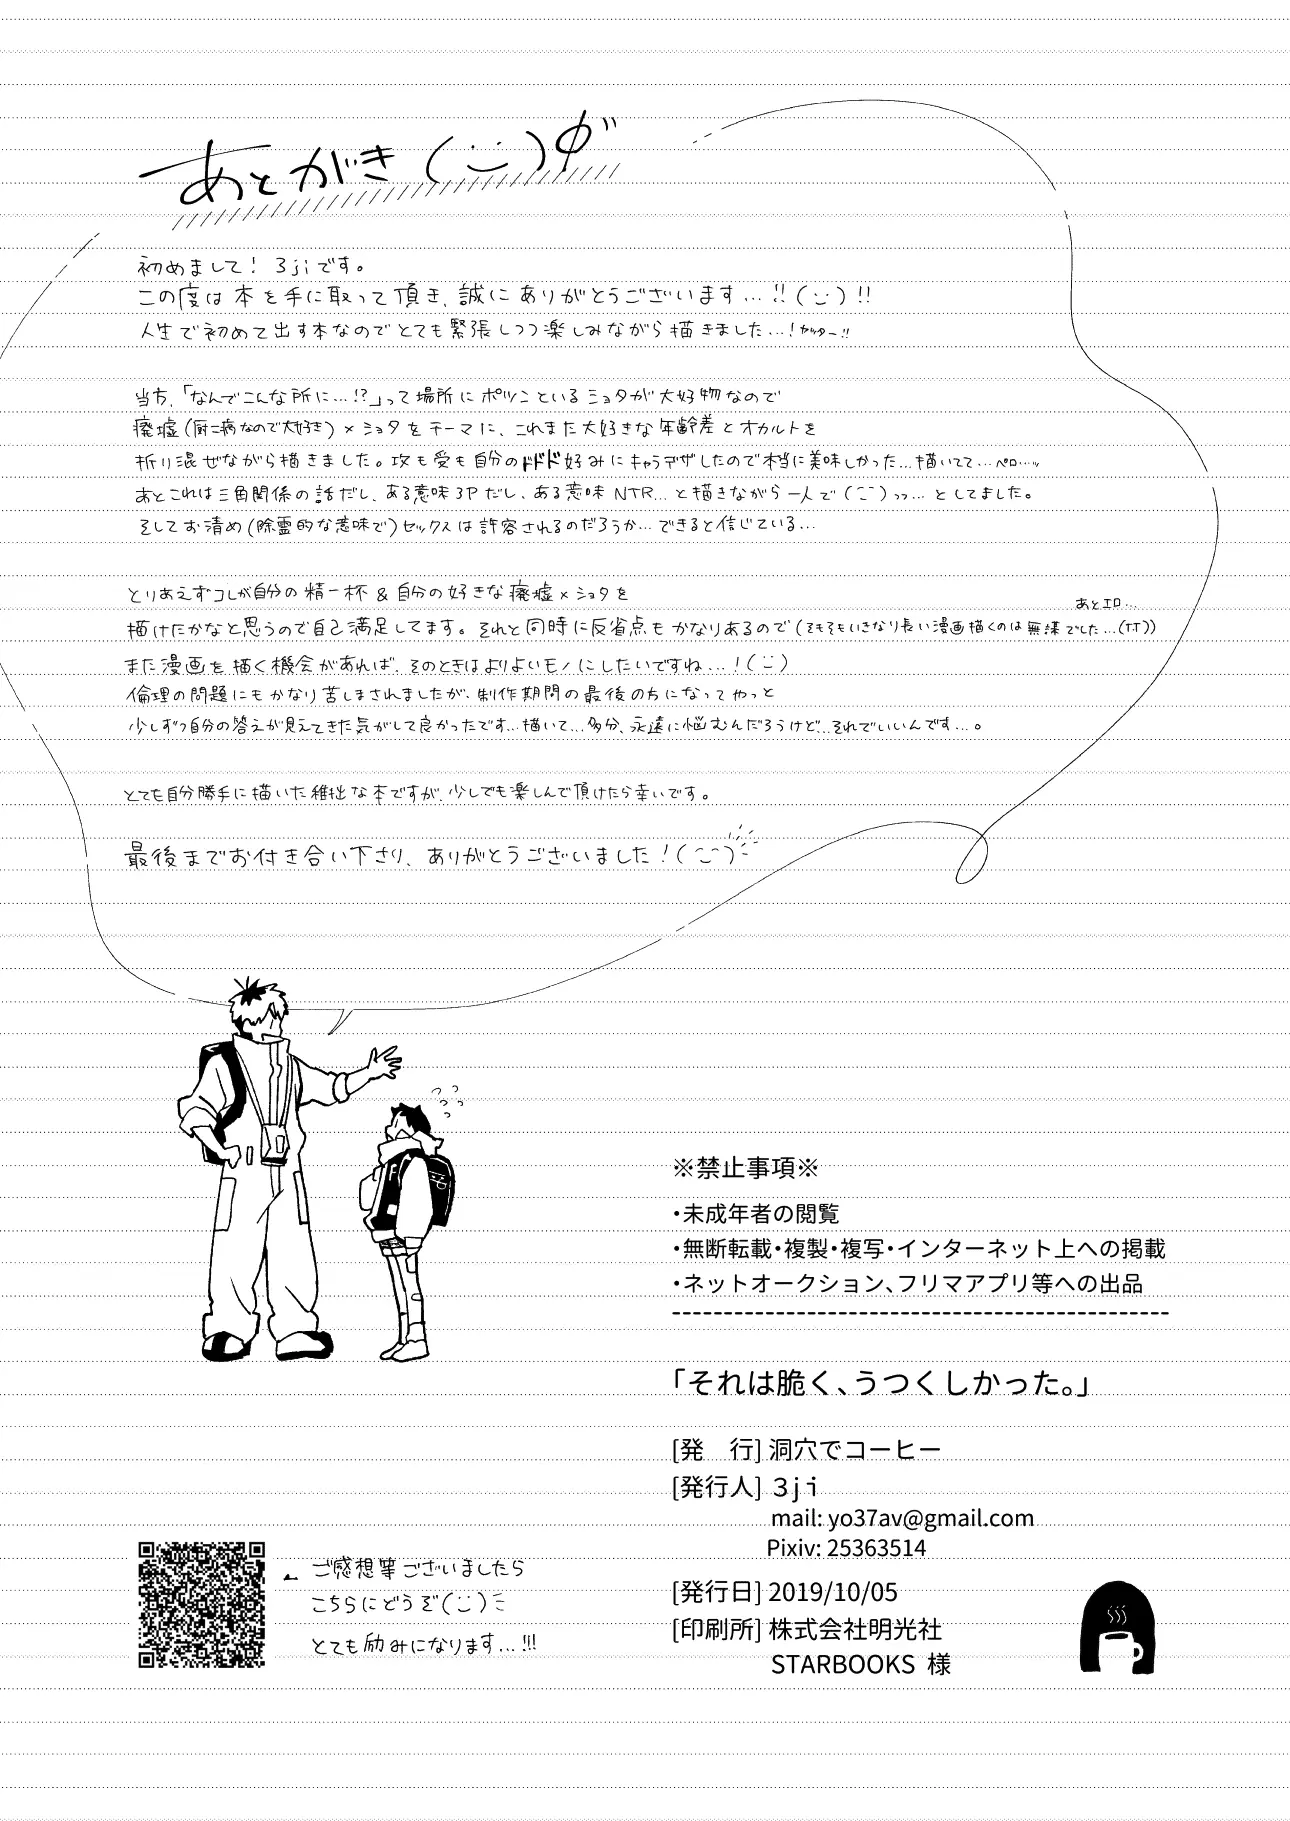 あとがき (¨)و"
初めまして! 3jiです。
この度は本を手に取って頂き、誠にありがとうございます…!!(¨)!!
人生で初めて出す本なのでとても緊張しつつ楽しみながら描きました…!ヤッター!!
当方、「なんでこんな所に…!?」って場所にポツンといるショタが大好物なので
廃墟(厨二病なので大好き)×ショタをテーマに、これまた大好きな年齢差とオカルトを
折り混ぜながら描きました。攻も受も自分のドドド好みにキャラデザしたので本当に美味しかった…描いてて…ペロ…ッ
あとこれは三角関係の話だし、ある意味3Pだし、ある意味NTR…と描きながら一人で(¨)っっ…としてました。
そしてお清め(除霊的な意味で)セックスは許容されるのだろうか…できると信じている…
とりあえずコレが自分の精一杯&自分の好きな廃墟×ショタを
あとエロ…
描けたかなと思うので自己満足してます。それと同時に反省点もかなりあるので(そもそもいきなり長い漫画描くのは無謀でした…(TT))
また漫画を描く機会があれば、そのときはよりよいモノにしたいですね…!(¨)
倫理の問題にもかなり苦しまされましたが、制作期間の最後の方になってやっと
少しずつ自分の答えが見えてきた気がして良かったです…描いて…多分、永遠に悩むんだろうけど…それでいいんです…。
とても自分勝手に描いた稚拙な本ですが、少しでも楽しんで頂けたら幸いです。
最後までお付き合い下さり、ありがとうございました!(¨)
※禁止事項※
・未成年者の閲覧
・無断転載・複製・複写・インターネット上への掲載
・ネットオークション、フリマアプリ等への出品
「それは脆く、うつくしかった。」
[発　行] 洞穴でコーヒー
[発行人] 3ji
mail: yo37av@gmail.com
Pixiv: 25363514
[発行日] 2019/10/05
[印刷所] 株式会社明光社
STARBOOKS 様
ご感想等ございましたら
こちらにどうぞ(¨)
とても励みになります…!!!